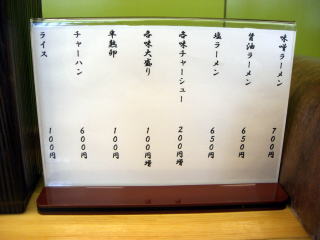 味噌ラーメン 700円
醤油ラーメン 650円
塩ラーメン 650円
各味チャーシュー 200円増
各味大盛り 100円増
半熟卵 100円
チャーハン 600円
ライス 100円